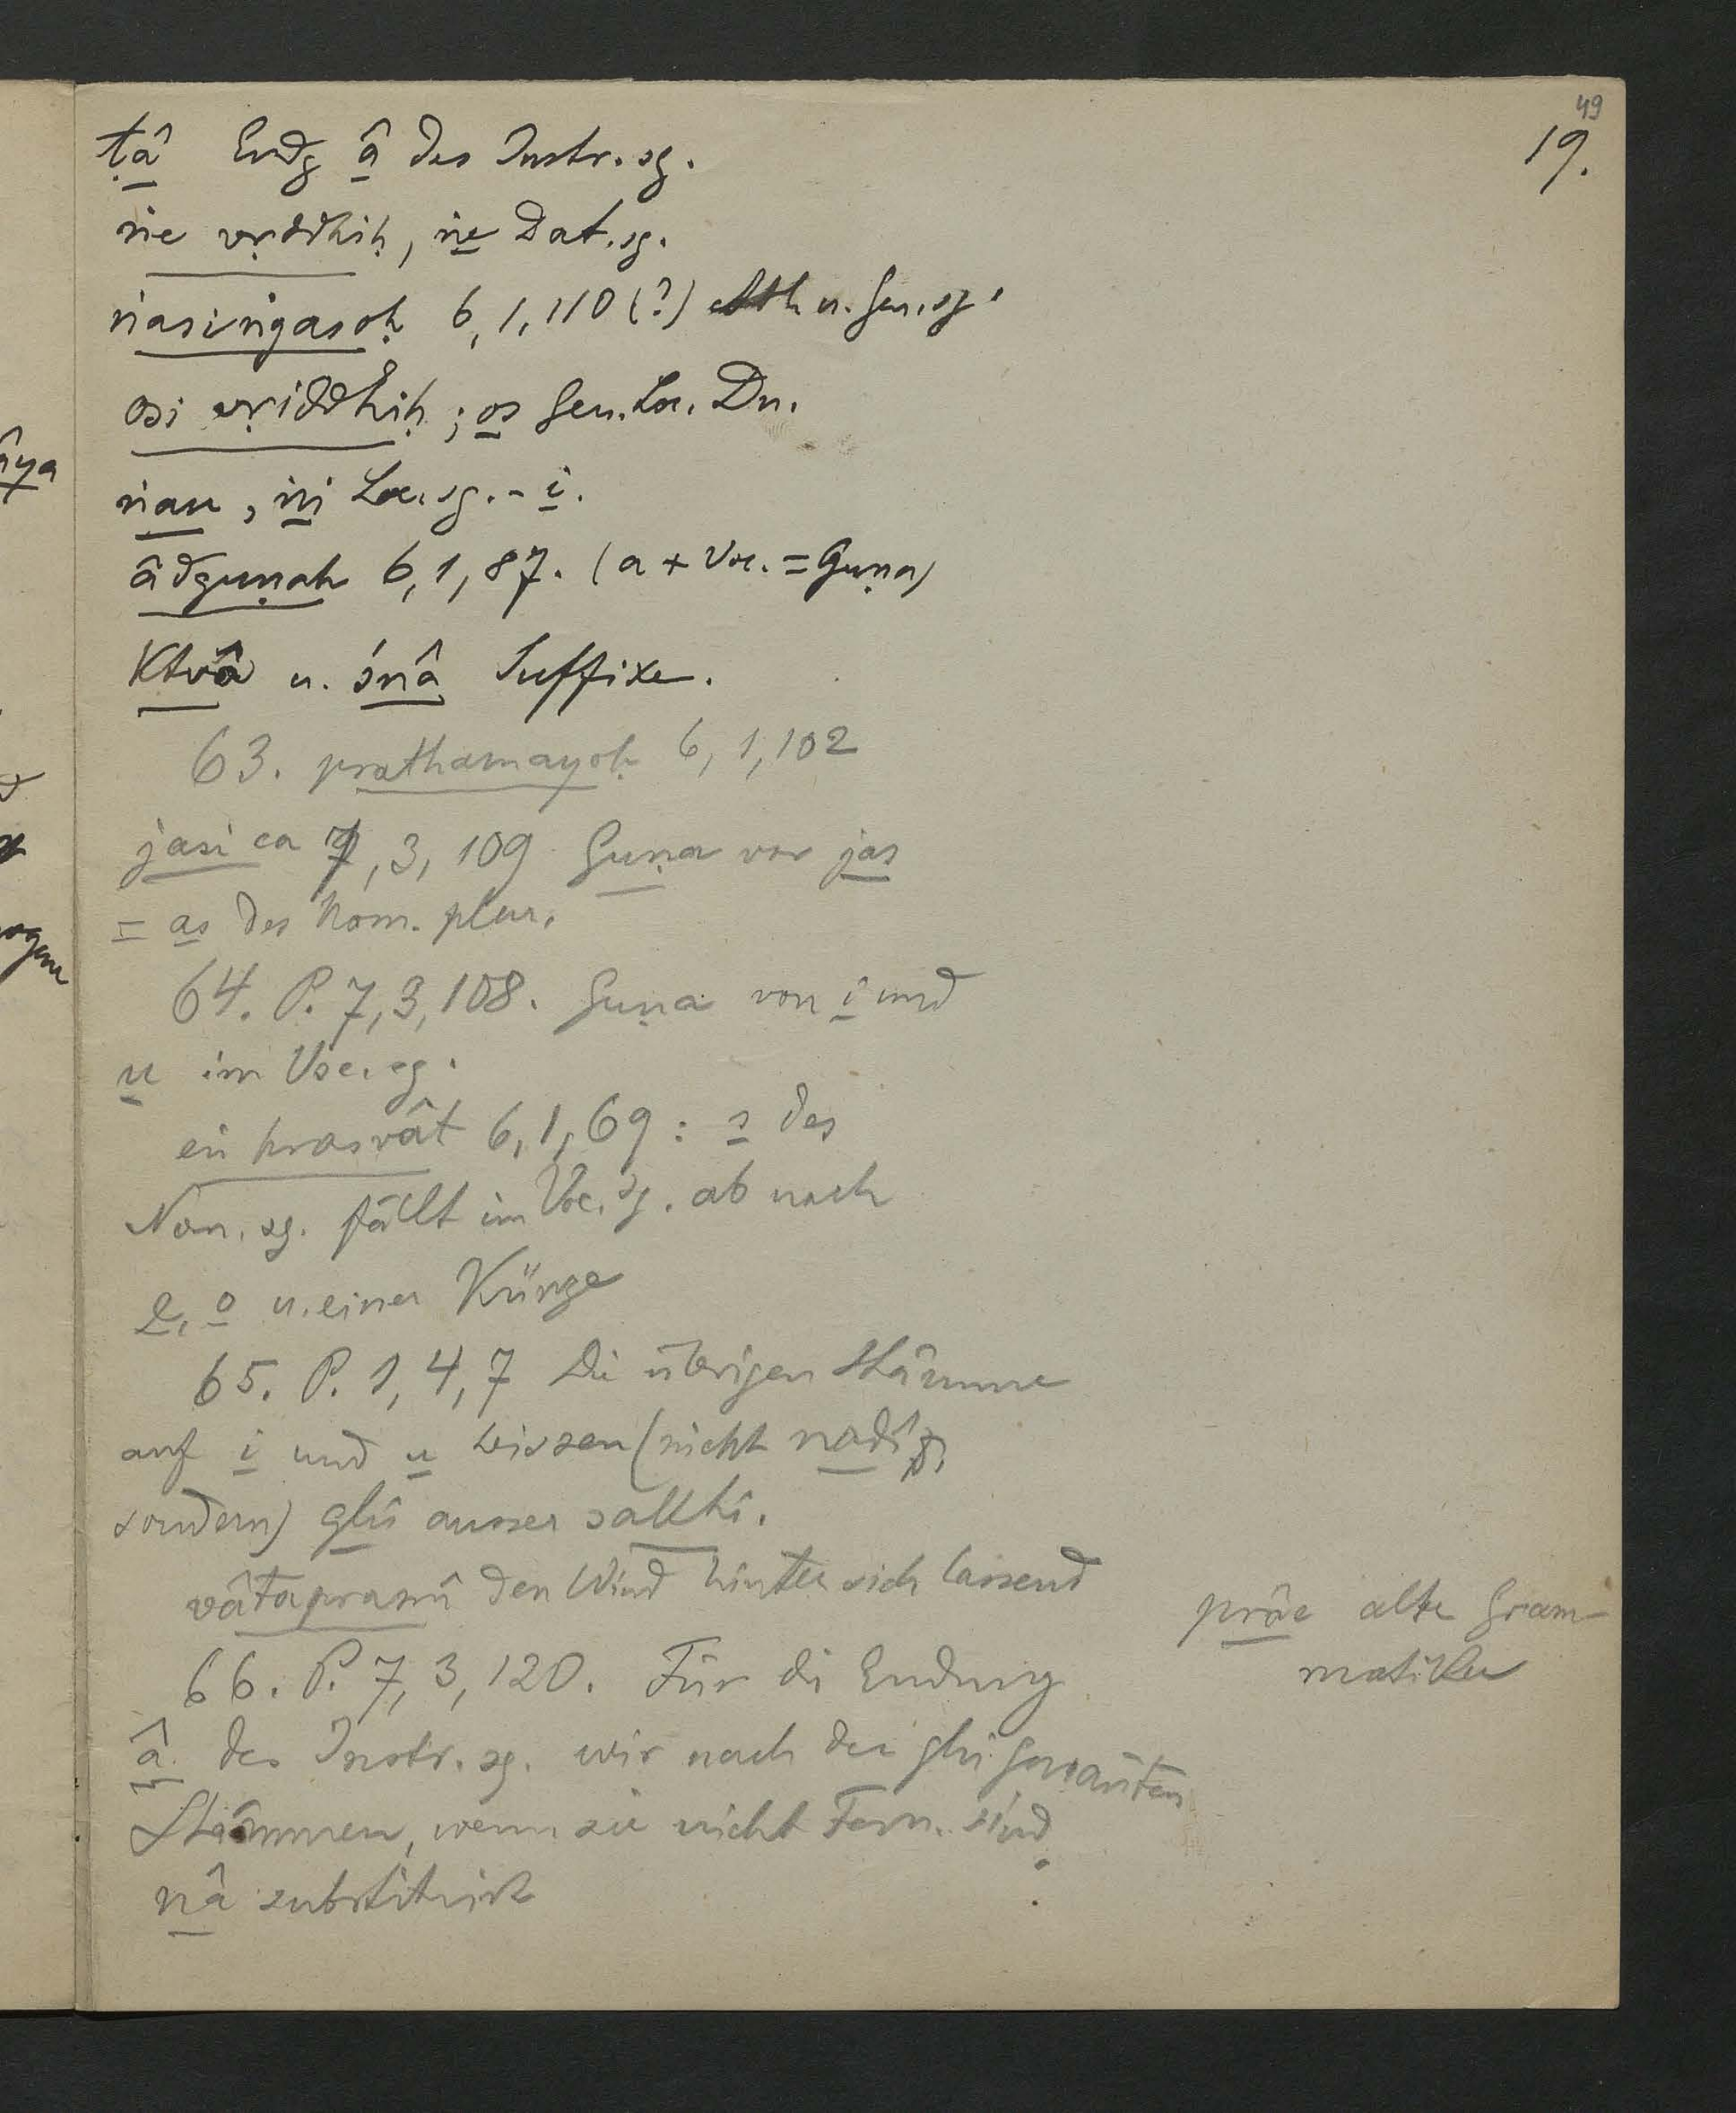 49
19.
ṭâ Endg â des Instr. sg.
ṅe vṛddhiḥ, ṅe Dat. sg.
ṅasiṅgasoḥ 6, 1, 110 (?) Abl. u. Gen. sg.
osi vṛiddhiḥ; os Gen. Loc. Du.
ṅau, ṅi Loc. sg. - i.
âdguṇah 6, 1, 87. (a + Voc. = Guṇa)
Ktvâ u. śnâ Suffixe.
63. prathamayoḥ 6, 1, 102
jasi ca 7, 3, 109 Guṇa vor jas
= as des Nom. plur.
64. P. 7, 3, 108. Guṇa von i und
u im Voc. sg.
eṅ hrasvât 6, 1, 69 : s des
Nom. sg. fällt im Voc. sg. ab nach
e, o u. einer Kürze
65. P. 1, 4, 7 Die übrigen Stämme
auf i und u heissen (nicht nadî,
sondern) ghi ausser sakhi.
vâtapramî den Wind hinter sich lassend
präc alte Gram-
matiker
66. P. 7, 3, 120. Für die Endung
â des Instr. sg. wir nach den ghi genanten
Stämmen, wenn sie nicht Fem. sind
nâ substituirt
âya